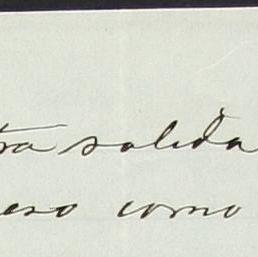 tra salida
eso como